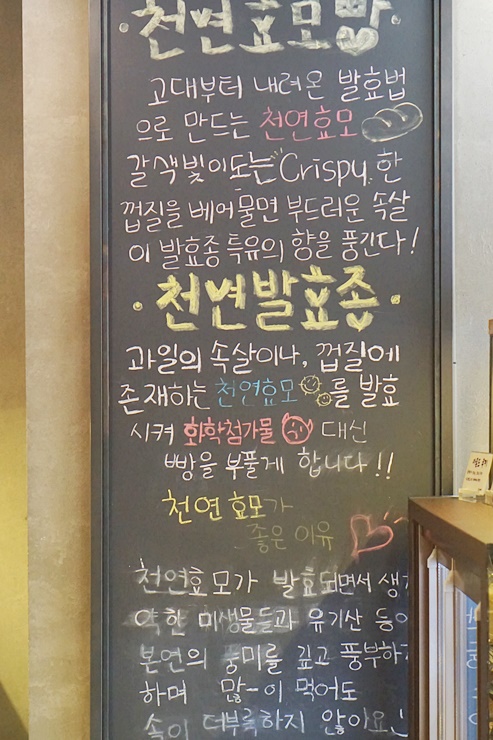 ·천연효모빵·
고대부터 내려온 발효법
으로 만드는 천연효모
갈색빛이도는 "Crispy" 한
껍질을 베어물면 부드러운 속살
이 발효종 특유의 향을 풍긴다!
·천연발효종·
과일의 속살이나, 껍질에
존재하는 천연효모를 발효
시켜 화학첨가물 대신
빵을 부풀게 합니다!!
천연효모가
좋은 이유
천연효모가 발효되면서 생
한 미생물들과 유기산 등
본연의 풍미를 깊고 풍부하
하며 많-이 먹어도
속이 더부룩하지 않아요